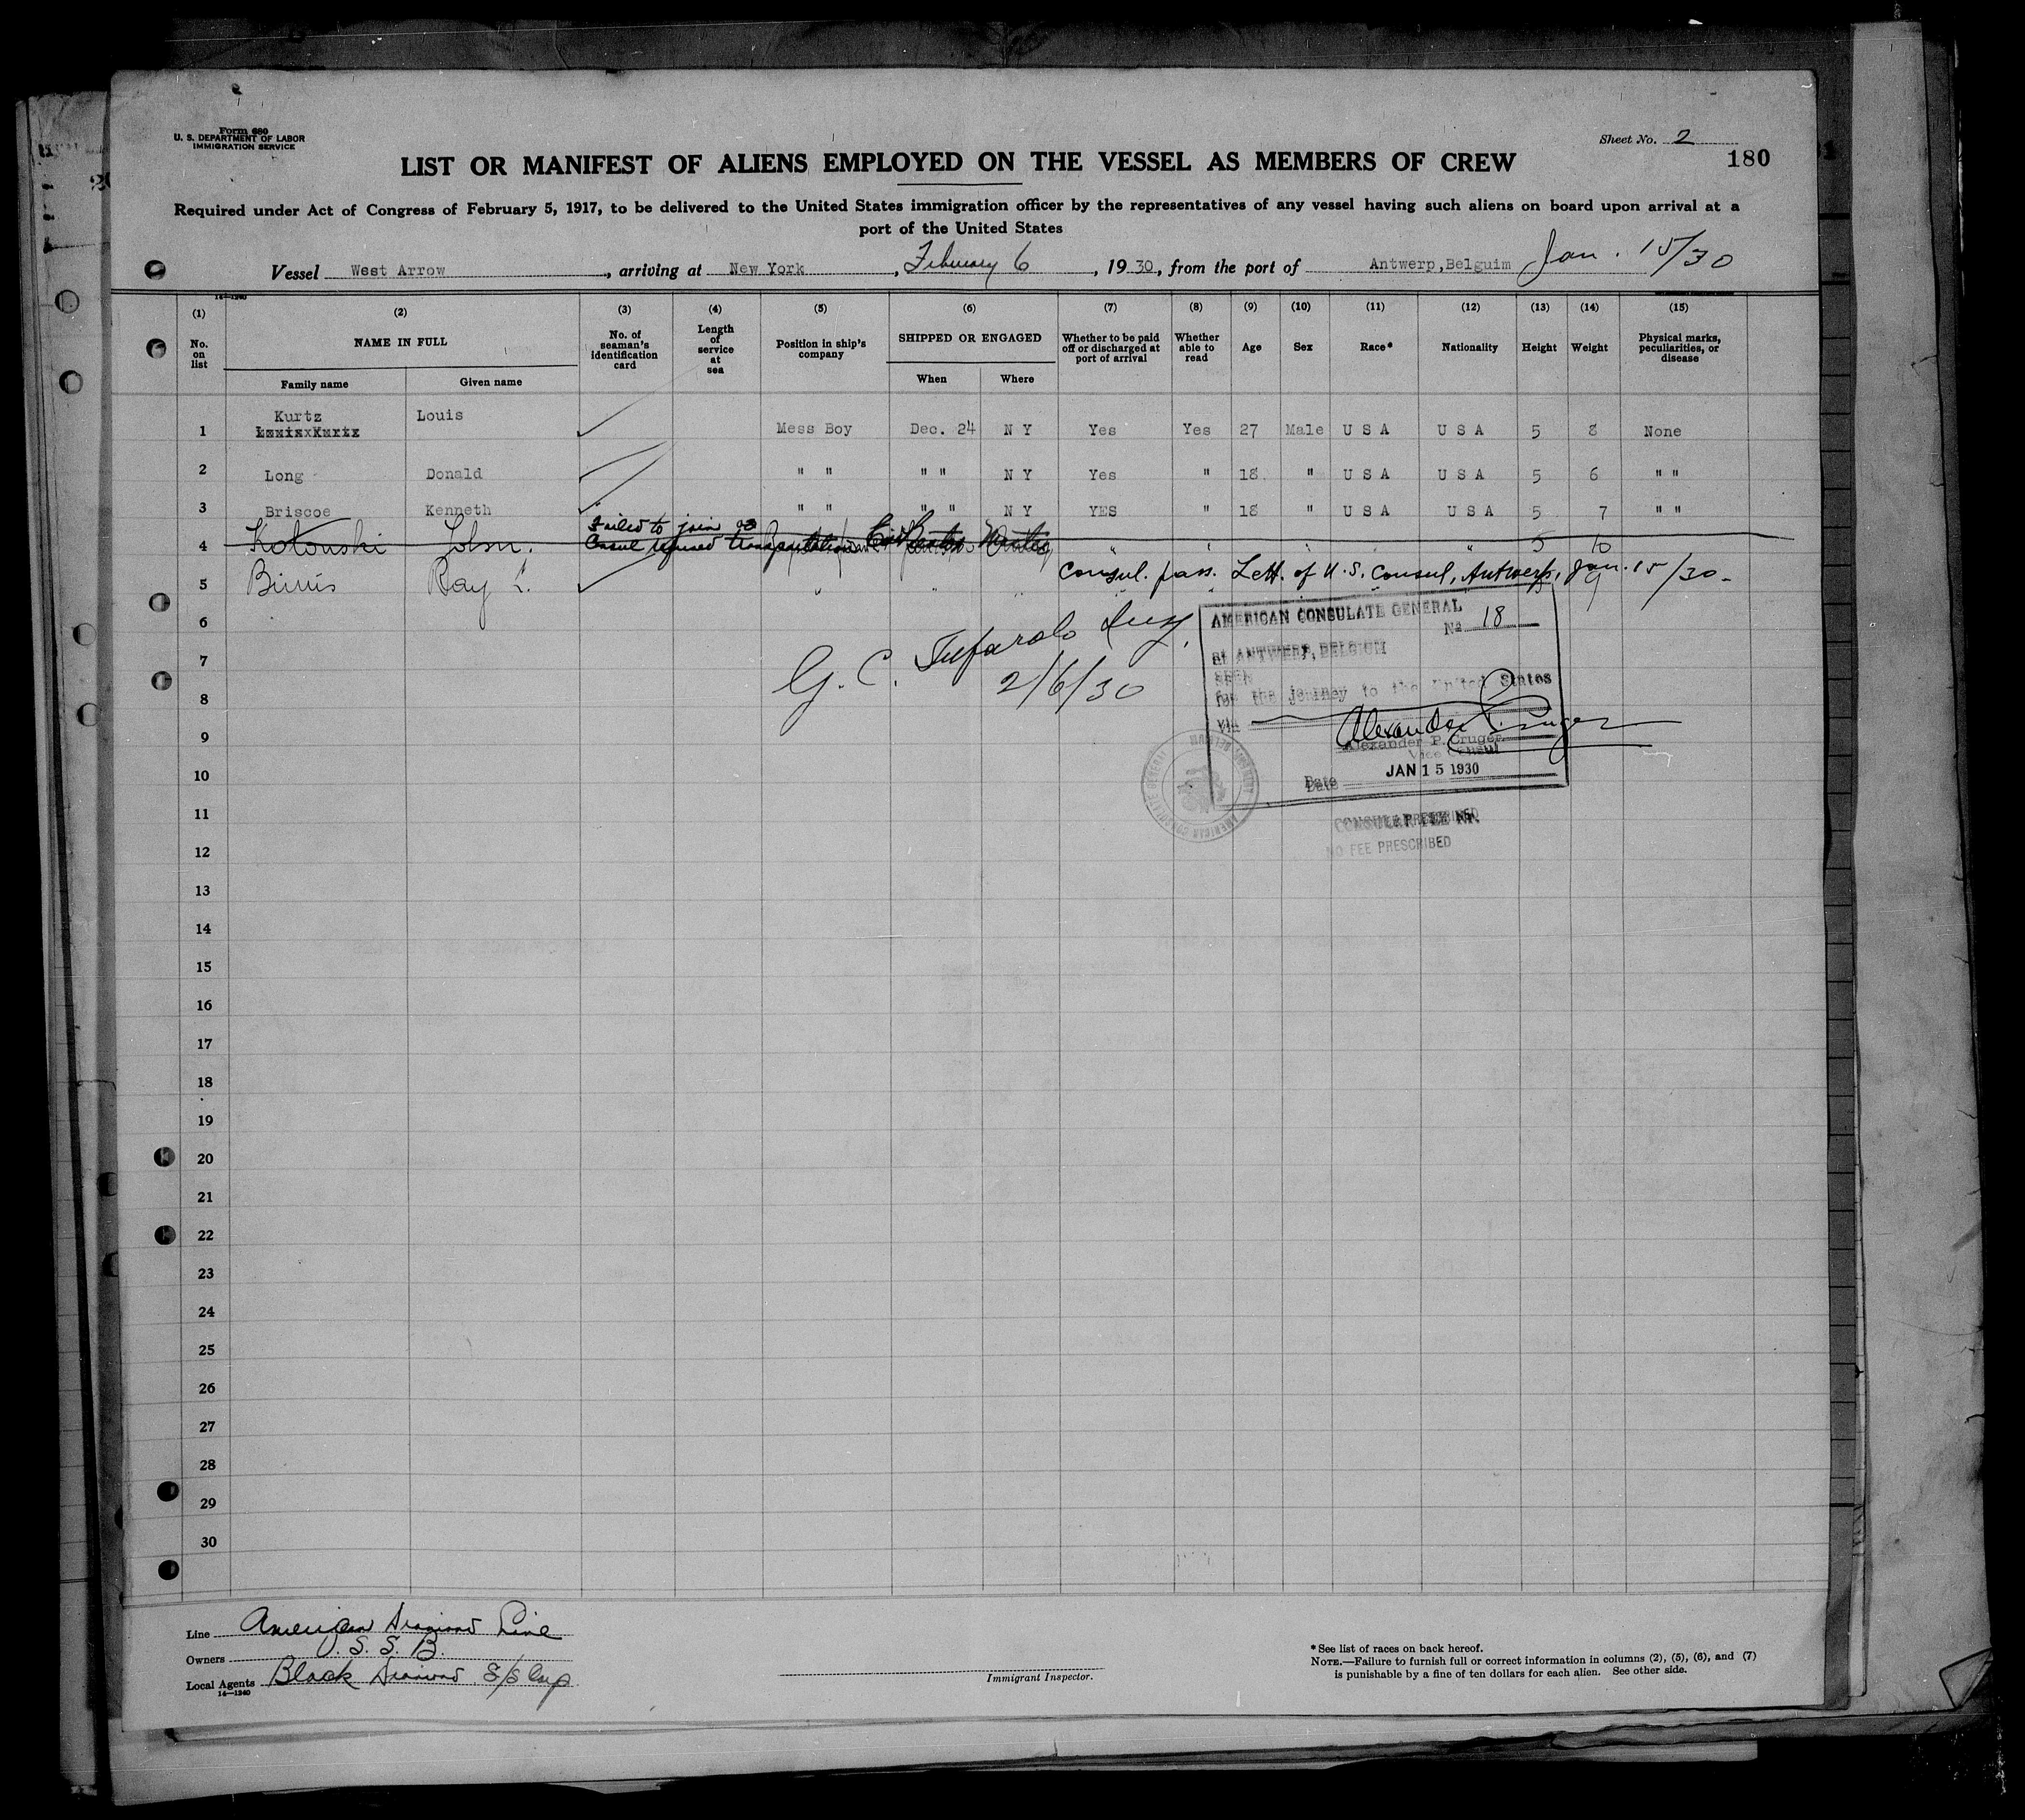 Form 680
U. S. DEPARTMENT OF LABOR
IMMIGRATION SERVICE
Sheet No. 2
180
LIST OR MANIFEST OF ALIENS EMPLOYED ON THE VESSEL AS MEMBERS OF CREW
Required under Act of Congress of February 5, 1917, to be delivered to the United States immigration officer by the representatives of any vessel having such aliens on board upon arrival at a
port of the United States
Vessel West Arrow, arriving at New York, February 6, 1930, from the port of Antwerp, Belguim Jan. 15/30
14—1240
(1) (2) (3) (4) (5) (6) (7) (8) (9) (10) (11) (12) (13) (14) (15)
No. on list
NAME IN FULL
Family name Given name
No. of seaman's identification card
Length of service at sea
Position in ship's company
SHIPPED OR ENGAGED
When Where
Whether to be paid off or discharged at port of arrival
Whether able to read
Age
Sex
Race*
Nationality
Height
Weight
Physical marks, peculiarities, or disease
1 Kurtz Louis Mess Boy Dec. 24 N Y Yes Yes 27 Male U S A U S A 5 8 None
2 Long Donald " " " " N Y Yes " 18 " U S A U S A 5 6 " "
3 Briscoe Kenneth " " " " N Y YES " 18 " U S A U S A 5 7 " "
Failed to join as
4 Kotouski John. Consul refused transportation " " " " " " 5 10
5 Ray L. Consul. pass. Lett. of U. S. Consul, Antwerp, Jan. 15/30-
6
7
8
9
10
11
12
13
14
15
16
17
18
19
20
21
22
23
24
25
26
27
28
29
30
G. C. Tufarolo
2/6/30
AMERICAN CONSULATE GENERAL
No 18
at ANTWERP, BELGIUM
SEEN
for the journey to the United States
via
Alexander P. Cruger
Alexander P. Cruger
Vice Consul
Date JAN 15 1930
NO FEE PRESCRIBED
Line American Diamond Line
Owners U. S. S. B.
Local Agents Black Diamond S/S Corp
14—1240
Immigrant Inspector.
* See list of races on back hereof.
NOTE.—Failure to furnish full or correct information in columns (2), (5), (6), and (7)
is punishable by a fine of ten dollars for each alien. See other side.